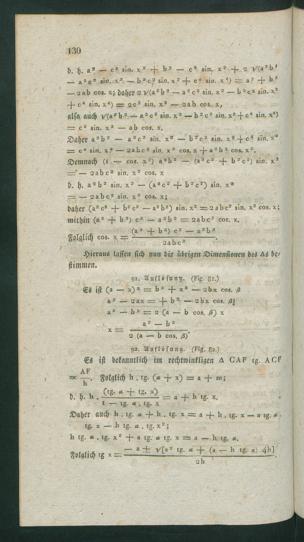 130
d. h. a² — c² sin. x² + b² — c² sin. x² + 2 √(a²b²
— a²c² sin. x² — b²c² sin. x² + c⁴ sin. x⁴) = a² + b²
— 2ab cos. x; daher 2 √(a²b² — a²c² sin. x² — b²c² sin. x²
+ c⁴ sin. x⁴) = 2c² sin. x² — 2ab cos. x,
also auch √(a²b² — a²c² sin. x² — b²c² sin. x² + c⁴ sin. x⁴)
= c² sin. x² — ab cos. x.
Daher a²b² — a²c² sin. x² — b²c² sin. x² + c⁴ sin. x⁴
= c⁴ sin. x⁴ — 2abc² sin. x² cos. x + a²b² cos. x².
Demnach (1 — cos. x²) a²b² — (a²c² + b²c²) sin. x²
= — 2abc² sin. x² cos. x
d. h. a²b² sin. x² — (a²c² + b²c²) sin. x²
= — 2abc² sin. x² cos. x;
daher (a²c² + b²c² — a²b²) sin. x² = 2abc² sin. x² cos. x;
mithin (a² + b²) c² — a²b² = 2abc² cos. x.
Folglich cos. x = (a² + b²) c² — a²b² / 2abc².
Hieraus lassen sich nun die übrigen Dimensionen des Δs be-
stimmen.
91. Auflösung. (Fig. 81.)
Es ist (a — x)² = b² + x² — 2bx cos. β
a² — 2ax = + b² — 2bx cos. β;
a² — b² = 2 (a — b cos. β) x
x = a² — b² / 2 (a — b cos. β)
92. Auflösung. (Fig. 82.)
Es ist bekanntlich im rechtwinkligen Δ CAF tg. ACF
= AF / h. Folglich h. tg. (α + x) = a + m;
d. h. h. (tg. α + tg. x) / 1 — tg. α. tg. x = a + h tg. x.
Daher auch h. tg. α + h. tg. x = a + h. tg. x — a tg. α.
tg. x — h tg. α. tg. x²;
h tg. α. tg. x² + a tg. α tg. x = a — h tg. α.
Folglich tg x = — a + √[a² tg. α + (a — h tg. α) 4h] / 2h